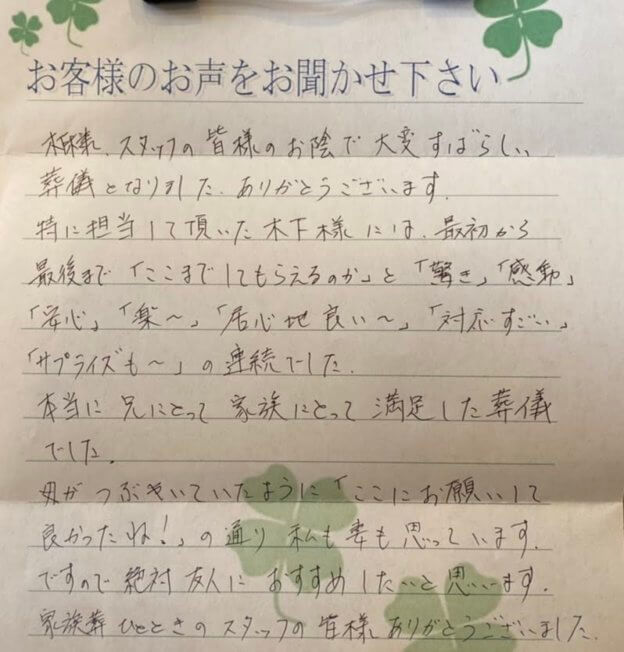 お客様のお声をお聞かせ下さい
スタッフの皆様のお陰で大変すばらしい
葬儀となりました。ありがとうございます。
特に担当して頂いた木下様には、最初から
最後まで「ここまでしてもらえるのか」と「驚き」「感動」
「安心」「楽〜」「居心地良い〜」「対応すごい」
「サプライズも〜」の連続でした。
本当に兄にとって家族にとって満足した葬儀
でした。
母がつぶやいていたように「ここにお願いして
良かったね！」の通り私も妻も思っています。
ですので絶対友人におすすめしたいと思います。
家族葬ひとときのスタッフの皆様ありがとうございました。